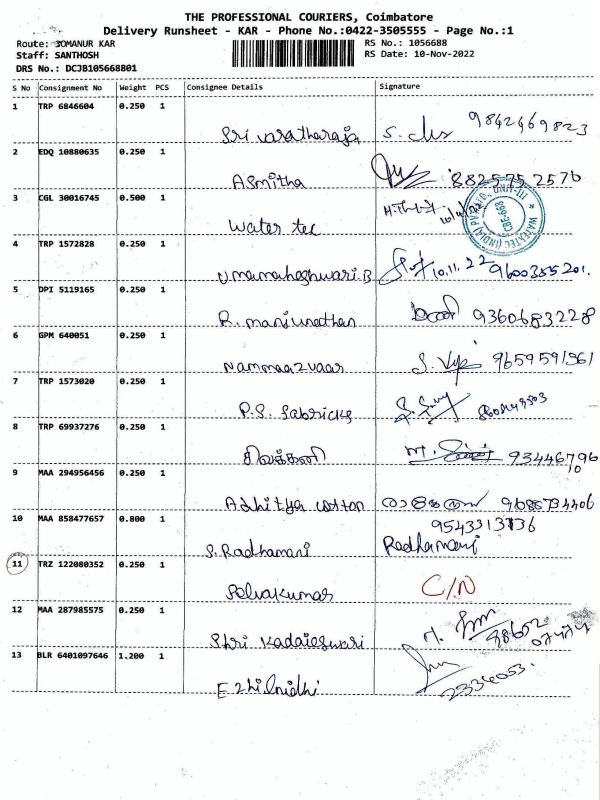 THE PROFESSIONAL COURIERS, Coimbatore
Delivery Runsheet - KAR - Phone No.:0422-3505555 - Page No.:1
Route: SOMANUR KAR
RS No.: 1056688
Staff: SANTHOSH
RS Date: 10-Nov-2022
DRS No.: DCJB105668801
S No Consignment No Weight PCS Consignee Details Signature
1 TRP 6846604 0.250 1
Sri varatharaja 9842469823
2 EDQ 10880635 0.250 1
Asmitha 882575 2576
3 CGL 30016745 0.500 1
Water tec
WATERTEC (INDIA) PVT LTD, UNIT-III
CBE-668
4 TRP 1572828 0.250 1
Umamaheshwari.B 10.11.22 9600355201.
5 DPI 5119165 0.250 1
R. manjunathan 9360683228
6 GPM 640051 0.250 1
Nammaazvaar 9659591561
7 TRP 1573020 0.250 1
P.S. Fabricks
8 TRP 69937276 0.250 1
சிவக்கனி 93446796
10
9 MAA 294956456 0.250 1
Adhitya cotton 9688734406
10 MAA 858477657 0.800 1
9543313736
S. Radhamani Radhamani
11 TRZ 122080352 0.250 1
Selvakumar C/N
12 MAA 287985575 0.250 1
Shri Kadaieswari
13 BLR 6401097646 1.200 1
Ezhilnidhi